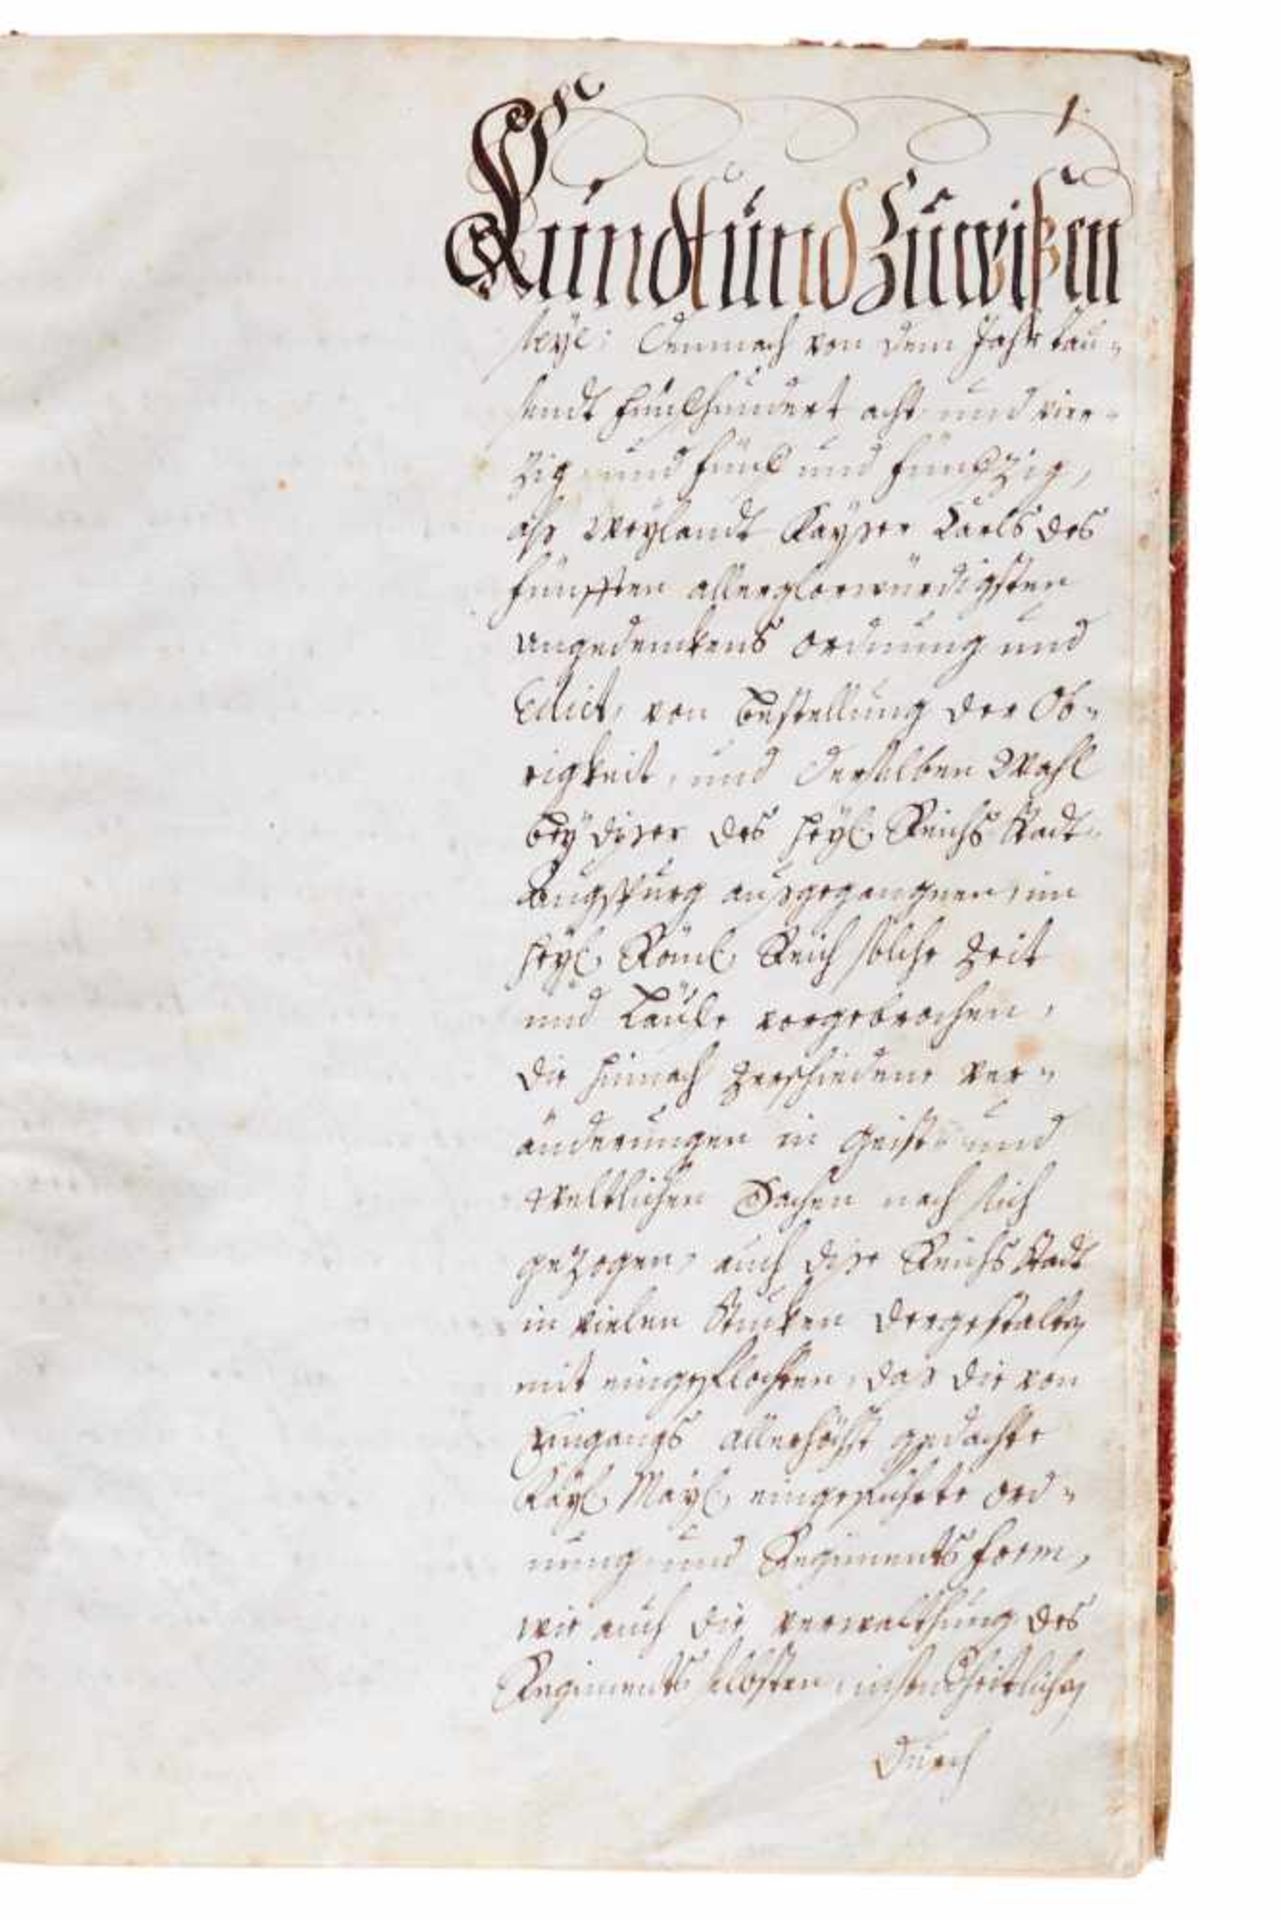 1.
Kundt und Zuwißen
seye: Demnach von dem Jahr tau-
sendt fünfhundert acht und vier-
zig und fünf und fünfzig,
alß Weylandt Kayser Carls des
fünfften allerglorwürdigsten
angedenckens ordnung und
Edict, von bestellung der Ob-
rigkeit, und derselben Wahl
bey dißer des heyl. Reichs Stadt
Augspurg außgegangnen, im
heyl. Röml. Reich solche Zeit
und Läufe vorgebrochen,
die hinnach zerschiedene ver-
änderungen in Geist- und
weltlichen Sachen nach sich
gezogen, auch diße Reichs Stadt
in vielen Stucken dergestalten
mit eingeflochten, daß die von
Eingangs allerhöchst gedachte
Kayl. Mayl. eingeführte ord-
nung und Regiments form,
wie auch die verwalthung des
Regiments selbsten,
durch